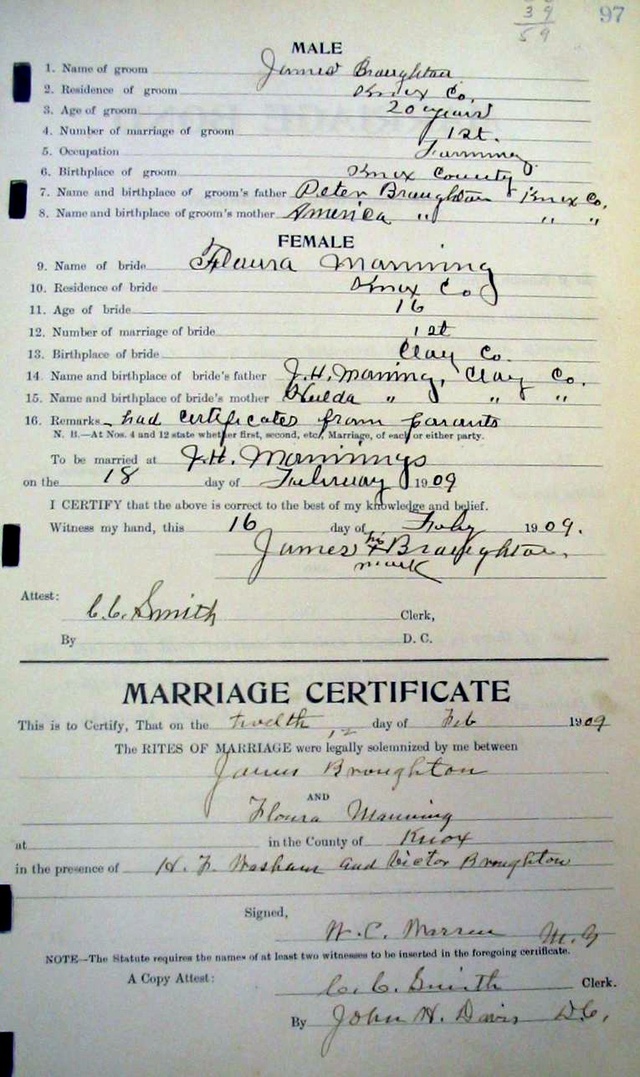 39
59
97
MALE
1. Name of groom James Braughton
2. Residence of groom Knox Co.
3. Age of groom 20 years
4. Number of marriage of groom 1st.
5. Occupation Farming
6. Birthplace of groom Knox County
7. Name and birthplace of groom's father Peter Braughton Knox Co.
8. Name and birthplace of groom's mother America " " "
FEMALE
9. Name of bride Flaura Manning
10. Residence of bride Knox Co
11. Age of bride 16
12. Number of marriage of bride 1st
13. Birthplace of bride Clay Co.
14. Name and birthplace of bride's father J.H. Maning, Clay Co.
15. Name and birthplace of bride's mother Hulda " " "
16. Remarks had certificates from parants
N. B.—At Nos. 4 and 12 state whether first, second, etc., Marriage, of each or either party.
To be married at J.H. Mannings
on the 18 day of February 1909
I CERTIFY that the above is correct to the best of my knowledge and belief.
Witness my hand, this 16 day of Feby 1909.
James his X Braughton.
mark
Attest:
C.C. Smith Clerk,
By D. C.
MARRIAGE CERTIFICATE
This is to Certify, That on the twelth 12 day of Feb 1909
The RITES OF MARRIAGE were legally solemnized by me between
James Broughton
AND
Floura Manning
at in the County of Knox
in the presence of H. F. Washam and Victor Broughton
Signed,
W. C. M. G
NOTE—The Statute requires the names of at least two witnesses to be inserted in the foregoing certificate.
A Copy Attest: C. C. Smith Clerk.
By John H. Davis D.C.